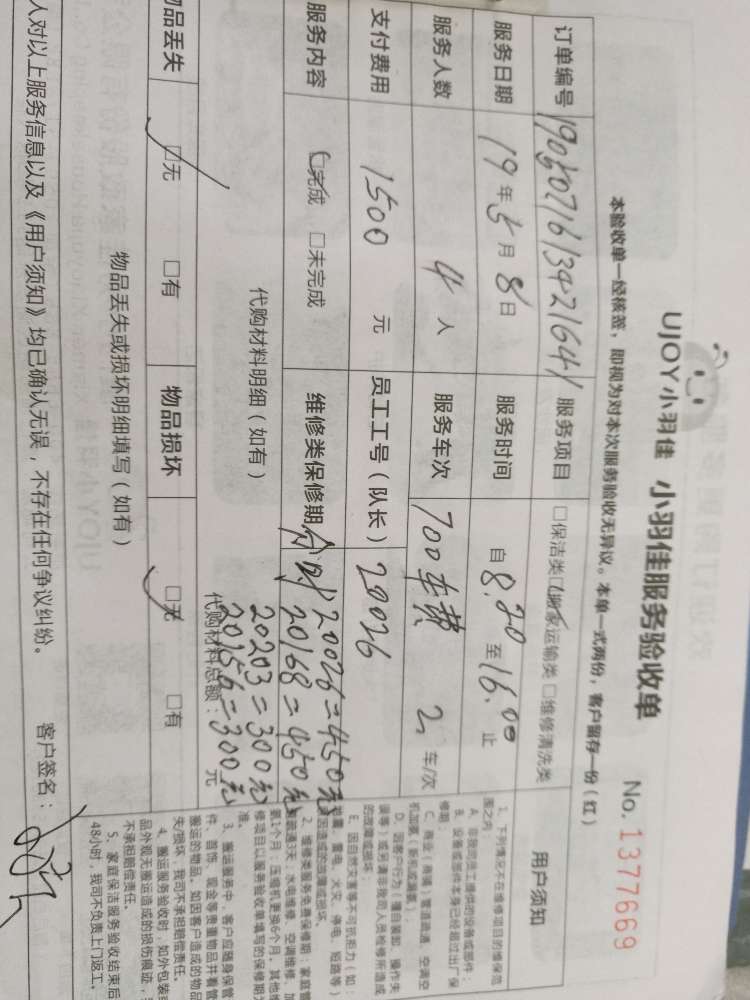 UJOY小羽佳 小羽佳服务验收单 No. 1377669
本验收单一经核签，即视为对本次服务验收无异议。本单一式两份，客户留存一份（红）
订单编号 190507161342164 服务项目 □保洁类 □搬家运输类 □维修清洗类
服务日期 19年5月8日 服务时间 自8.20至16.00止
服务人数 4人 服务车次 700车费 2车/次
支付费用 1500元 员工工号（队长） 20026
服务内容 □完成 □未完成 维修类保修期
20026=450元
20168=450元
20203=300元
20156=300元
代购材料明细（如有） 代购材料总额： 元
物品丢失 □无 □有 物品损坏 □无 □有
物品丢失或损坏明细填写（如有）
人对以上服务信息以及《用户须知》均已确认无误，不存在任何争议纠纷。 客户签名：
用户须知
1、下列情况不在维修项目的维保范
围之内：
A、非我司员工提供的设备或部件；
B、设备或部件本身已经超过出厂保
修期；
C、商业（商铺）管道疏通、空调空
D、因客户行为（擅自装卸、操作失
误等）或另请非我司人员检修所造成
的故障或损坏；
E、因自然灾害等不可抗拒力（如：
雷电、火灾、停电、短路等）
因造成的故障或损坏。
2、维修类服务免费保修期：家庭管
道疏通3天，水电维修、空调维修、加
氨1个月；压缩机更换6个月。其他维
修项目以服务验收单填写的保修期为
准。
3、搬运服务中，客户应随身保管
件、首饰、现金等贵重物品并看管
搬运的物品。如因客户造成的物品
失/损坏，我司不承担赔偿责任。
4、搬运服务验收时，如外包装或
品外观无搬运造成的损伤痕迹，
不承担赔偿责任。
5、家庭保洁服务验收结束后
48小时，我司不负责上门返工。